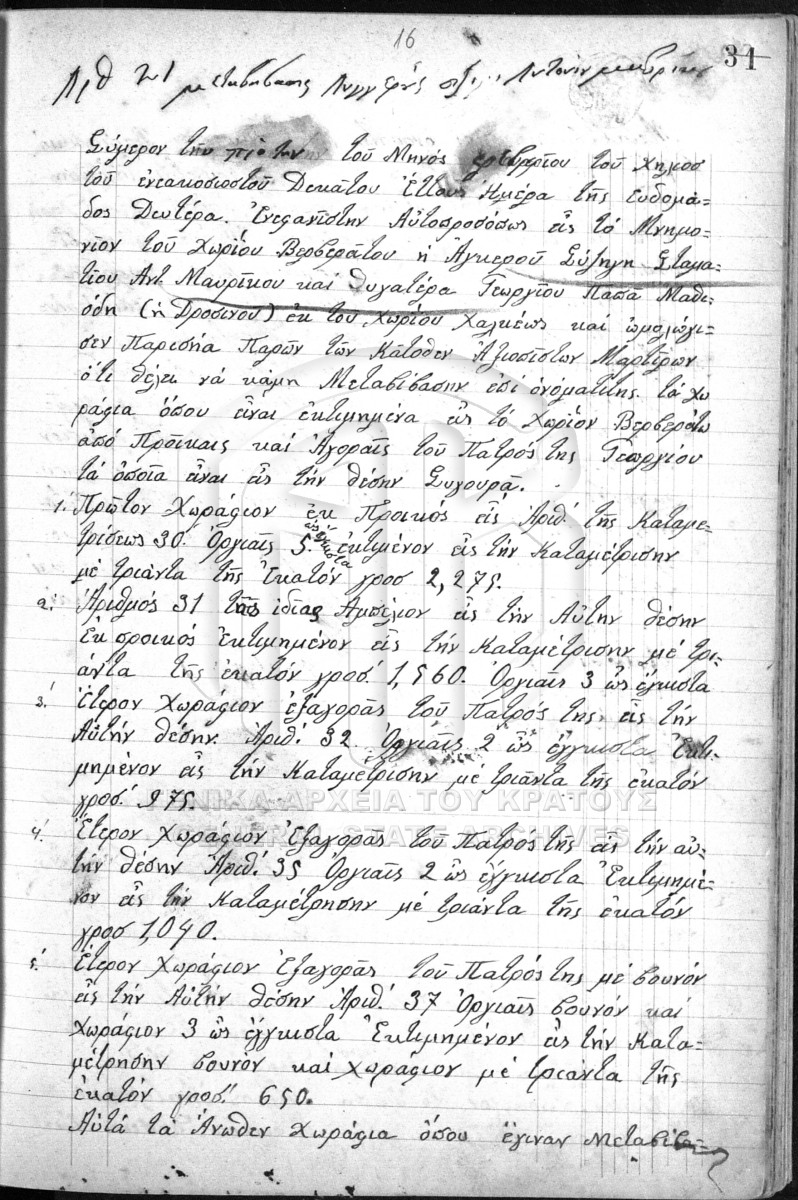 16
31
Ἀριθ 21 μεταβίβασης
Σύμερον τὴν τοῦ Μηνός τοῦ χηλιοσ
τοῦ ἐνεακοσιοστοῦ Δεκάτου Ἔτους Ἡμέρα τῆς ευδομά=
δος Δευτέρα. Ἐνεφανίστην Αὐτοπροσόπως εἰς τὸ Μνημο=
νίον τοῦ Χωρίου Βερβεράτου ἡ Ἀγκεροῦ Σύζηγη Σταμα=
τίου Αντ. Μαυρίκου καὶ θυγατέρα Γεωργίου Παπᾶ Μαθι=
όδη (ἡ Δροσινοῦ) ἐκ τοῦ Χωρίου Χαλκέως καὶ ὡμολώγι=
σεν Παρισήα Παρῶν τῶν Κάτοθεν Ἀξιοπίστων Μαρτίρων
ὅτι θέλει νά κάμη Μεταβίβασην ἐπί ὀνόματιτης τά χω
ράφια ὁπου εἶναι ἐκτιμημένα εἰς τὸ Χωρίον Βερβεράτω
ἀπό Πρόικαις καί Ἀγοραῖς τοῦ Πατρός της Γεωργίου
τά ὁποῖα εἶναι εἰς τὴν θέσην Συγουρᾶ.
1. Πρῶτον Χωράφιον ἐκ Προικός εἰς Ἀριθ. τῆς Καταμε=
τρίσεως 30. Ὀργιαῖς 5. ὡς ἔγκιστα ἐκτιμένον εἰς τὴν Καταμέτρισην
μὲ τριάντα τῆς Ἑκατόν γροσ 2,275.
2. Ἀριθμός 31 τῆς ἰδίας Αμπέλιον εἰς τὴν Αὐτην θέσην
ἐκ προικός ἐκτιμημένον εἰς τὴν Καταμέτρισην μὲ τρι=
άντα τῆς ἑκατόν γροσ. 1,560. Ὀργιαῖς 3 ὡς ἔγκιστα
3. Ἕτερον Χωράφιον ἐξαγορᾶς τοῦ Πατρός της εἰς τὴν
Αὐτήν θέσην. Ἀριθ. 32. Ὀργιαῖς 2 ὡς ἔγγκιστα Ἐκτι=
μημένον εἰς τὴν Καταμέτρισην μὲ τριάντα τῆς ἑκατόν
γροσ. 975.
4. Ἕτερον Χωράφιον Ἐξαγορᾶς τοῦ Πατρός της εἰς τὴν αὐ=
τήν θέσην Ἀριθ. 35 Ὀργιαῖς 2 ὡς ἔγγκιστα Ἐκτιμημέ=
νον εἰς τὴν Καταμέτρησην μὲ τριάντα τῆς ἑκατόν
γροσ 1,040.
5. Ἕτερον Χωράφιον Ἐξαγορᾶς τοῦ Πατρός της μὲ βουνόν
εἰς τὴν Αὐτήν θέσην Ἀριθ. 37 Ὀργιαῖς βουνόν καί
Χωράφιον 3 ὡς ἔγγκιστα Ἐκτιμημένον εἰς τὴν Κατα=
μέτρησην βουνόν καί χωράφιον μὲ τριάντα τῆς
ἑκατόν γροσ. 650.
Αὐτά τὰ Ἄνωθεν Χωράφια ὁπου ἔγιναν Μεταβίβα=
ΓΕΝΙΚΑ ΑΡΧΕΙΑ ΤΟΥ ΚΡΑΤΟΥΣ
GENERAL STATE ARCHIVES